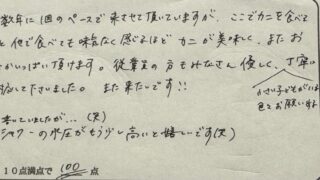 数年に1回のペースで来させて頂いていますが、ここでカニを食べ
と他で食べても味気なく感じるほどカニが美味しく、またお
かいっぱい頂けます。従業員の方もみなさん優しく、丁寧に
して下さいました。また来たいです!!
小さい子どもがいま
色々お願いする
していましたが…(笑)
シャワーの水圧がもう少し高いと嬉しいです(笑)
10点満点で 100 点